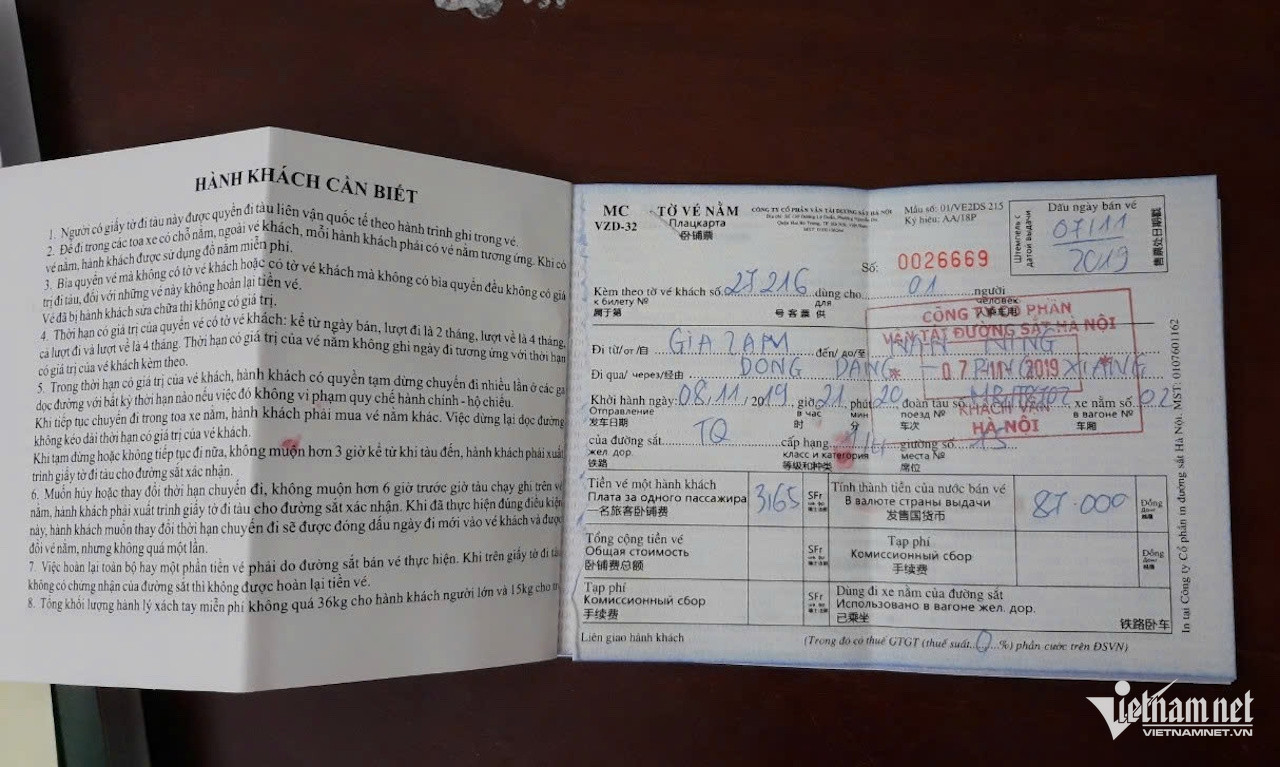 HÀNH KHÁCH CẦN BIẾT
1. Người có giấy tờ đi tàu này được quyền đi tàu liên vận quốc tế theo hành trình ghi trong vé.
2. Để đi trong các toa xe có chỗ nằm, ngoài vé khách, mỗi hành khách phải có vé nằm tương ứng. Khi có
vé nằm, hành khách được sử dụng đồ nằm miễn phí.
3. Bìa quyển vé mà không có tờ vé khách hoặc có tờ vé khách mà không có bìa quyển đều không có giá
trị đi tàu, đối với những vé này không hoàn lại tiền vé.
Vé đã bị hành khách sửa chữa thì không có giá trị.
4. Thời hạn có giá trị của quyển vé có tờ vé khách: kể từ ngày bán, lượt đi là 2 tháng, lượt về là 4 tháng,
cả lượt đi và lượt về là 4 tháng. Thời hạn có giá trị của vé nằm không ghi ngày đi tương ứng với thời hạn
có giá trị của vé khách kèm theo.
5. Trong thời hạn có giá trị của vé khách, hành khách có quyền tạm dừng chuyến đi nhiều lần ở các ga
dọc đường với bất kỳ thời hạn nào nếu việc đó không vi phạm quy chế hành chính - hộ chiếu.
Khi tiếp tục chuyến đi trong toa xe nằm, hành khách phải mua vé nằm khác. Việc dừng lại dọc đường
không kéo dài thời hạn có giá trị của vé khách.
Khi tạm dừng hoặc không tiếp tục đi nữa, không muộn hơn 3 giờ kể từ khi tàu đến, hành khách phải xuất
trình giấy tờ đi tàu cho đường sắt xác nhận.
6. Muốn hủy hoặc thay đổi thời hạn chuyến đi, không muộn hơn 6 giờ trước giờ tàu chạy ghi trên vé
nằm, hành khách phải xuất trình giấy tờ đi tàu cho đường sắt xác nhận. Khi đã thực hiện đúng điều kiện
này, hành khách muốn thay đổi thời hạn chuyến đi sẽ được đóng dấu ngày đi mới vào vé khách và được
đổi vé nằm, nhưng không quá một lần.
7. Việc hoàn lại toàn bộ hay một phần tiền vé phải do đường sắt bán vé thực hiện. Khi trên giấy tờ đi tàu
không có chứng nhận của đường sắt thì không được hoàn lại tiền vé.
8. Tổng khối lượng hành lý xách tay miễn phí không quá 36kg cho hành khách người lớn và 15kg cho
MC
VZD-32
TỜ VÉ NẰM
Плацкарта
卧铺票
CÔNG TY CỔ PHẦN VẬN TẢI ĐƯỜNG SẮT HÀ NỘI
Mẫu số: 01/VE2DS 215
Ký hiệu: AA/18P
Số: 0026669
Штемпель с
датой выдачи
Dấu ngày bán vé
07/11
2019
售票处日期戳
Kèm theo tờ vé khách số 27216 dùng cho 01 người
к билету № для человек
属于第 号客票 供
Đi từ/от/自 GIA LAM đến/ до/至 NAN NING
Đi qua/ через/经由 DONG DANG XIANG
CÔNG TY CỔ PHẦN
VẬN TẢI ĐƯỜNG SẮT HÀ NỘI
* 07 -11- 2019 *
KHÁCH VẬN
HÀ NỘI
Khởi hành ngày: 08.11./2019 giờ 21 phút 20 đoàn tàu số xe nằm số 02
Отправление в час мин поезд № в вагоне №
发车日期 时 分 车次 车厢
của đường sắt TQ cấp hạng giường số 15
жел дор. класс и категория места №
铁路 等级和种类 席位
Tiền vé một hành khách
Плата за одного пассажира
一名旅客卧铺费
3165
SFr
Tính thành tiền của nước bán vé
В валюте страны выдачи
发售国货币
87.000
Đồng
Tổng cộng tiền vé
Общая стоимость
卧铺费总额
SFr
Tạp phí
Комиссионный сбор
手续费
Đồng
Tạp phí
Комиссионный сбор
手续费
SFr
Dùng đi xe nằm của đường sắt
Использовано в вагоне жел. дор.
已乘坐 铁路卧车
Liên giao hành khách
(Trong đó có thuế GTGT (thuế suất 0 %) phần cước trên ĐSVN)
In tại Công ty Cổ phần in đường sắt Hà Nội. MST: 0107601162
Vietnamnet
VIETNAMNET.VN